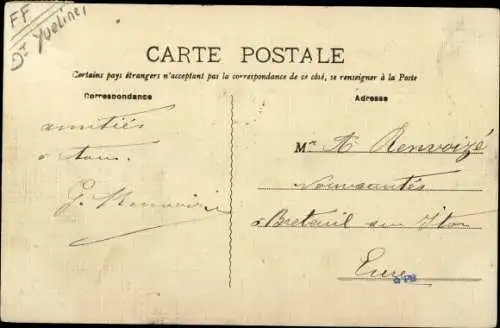 FF
St Yvelines
CARTE POSTALE
Certains pays étrangers n'acceptent pas la correspondance de ce côté, se renseigner à la Poste
Correspondance
Adresse
amitiés
à tous.
G. Renvoizé
Mr A Renvoizé
Nouveautés
à Breteuil sur Iton
Eure